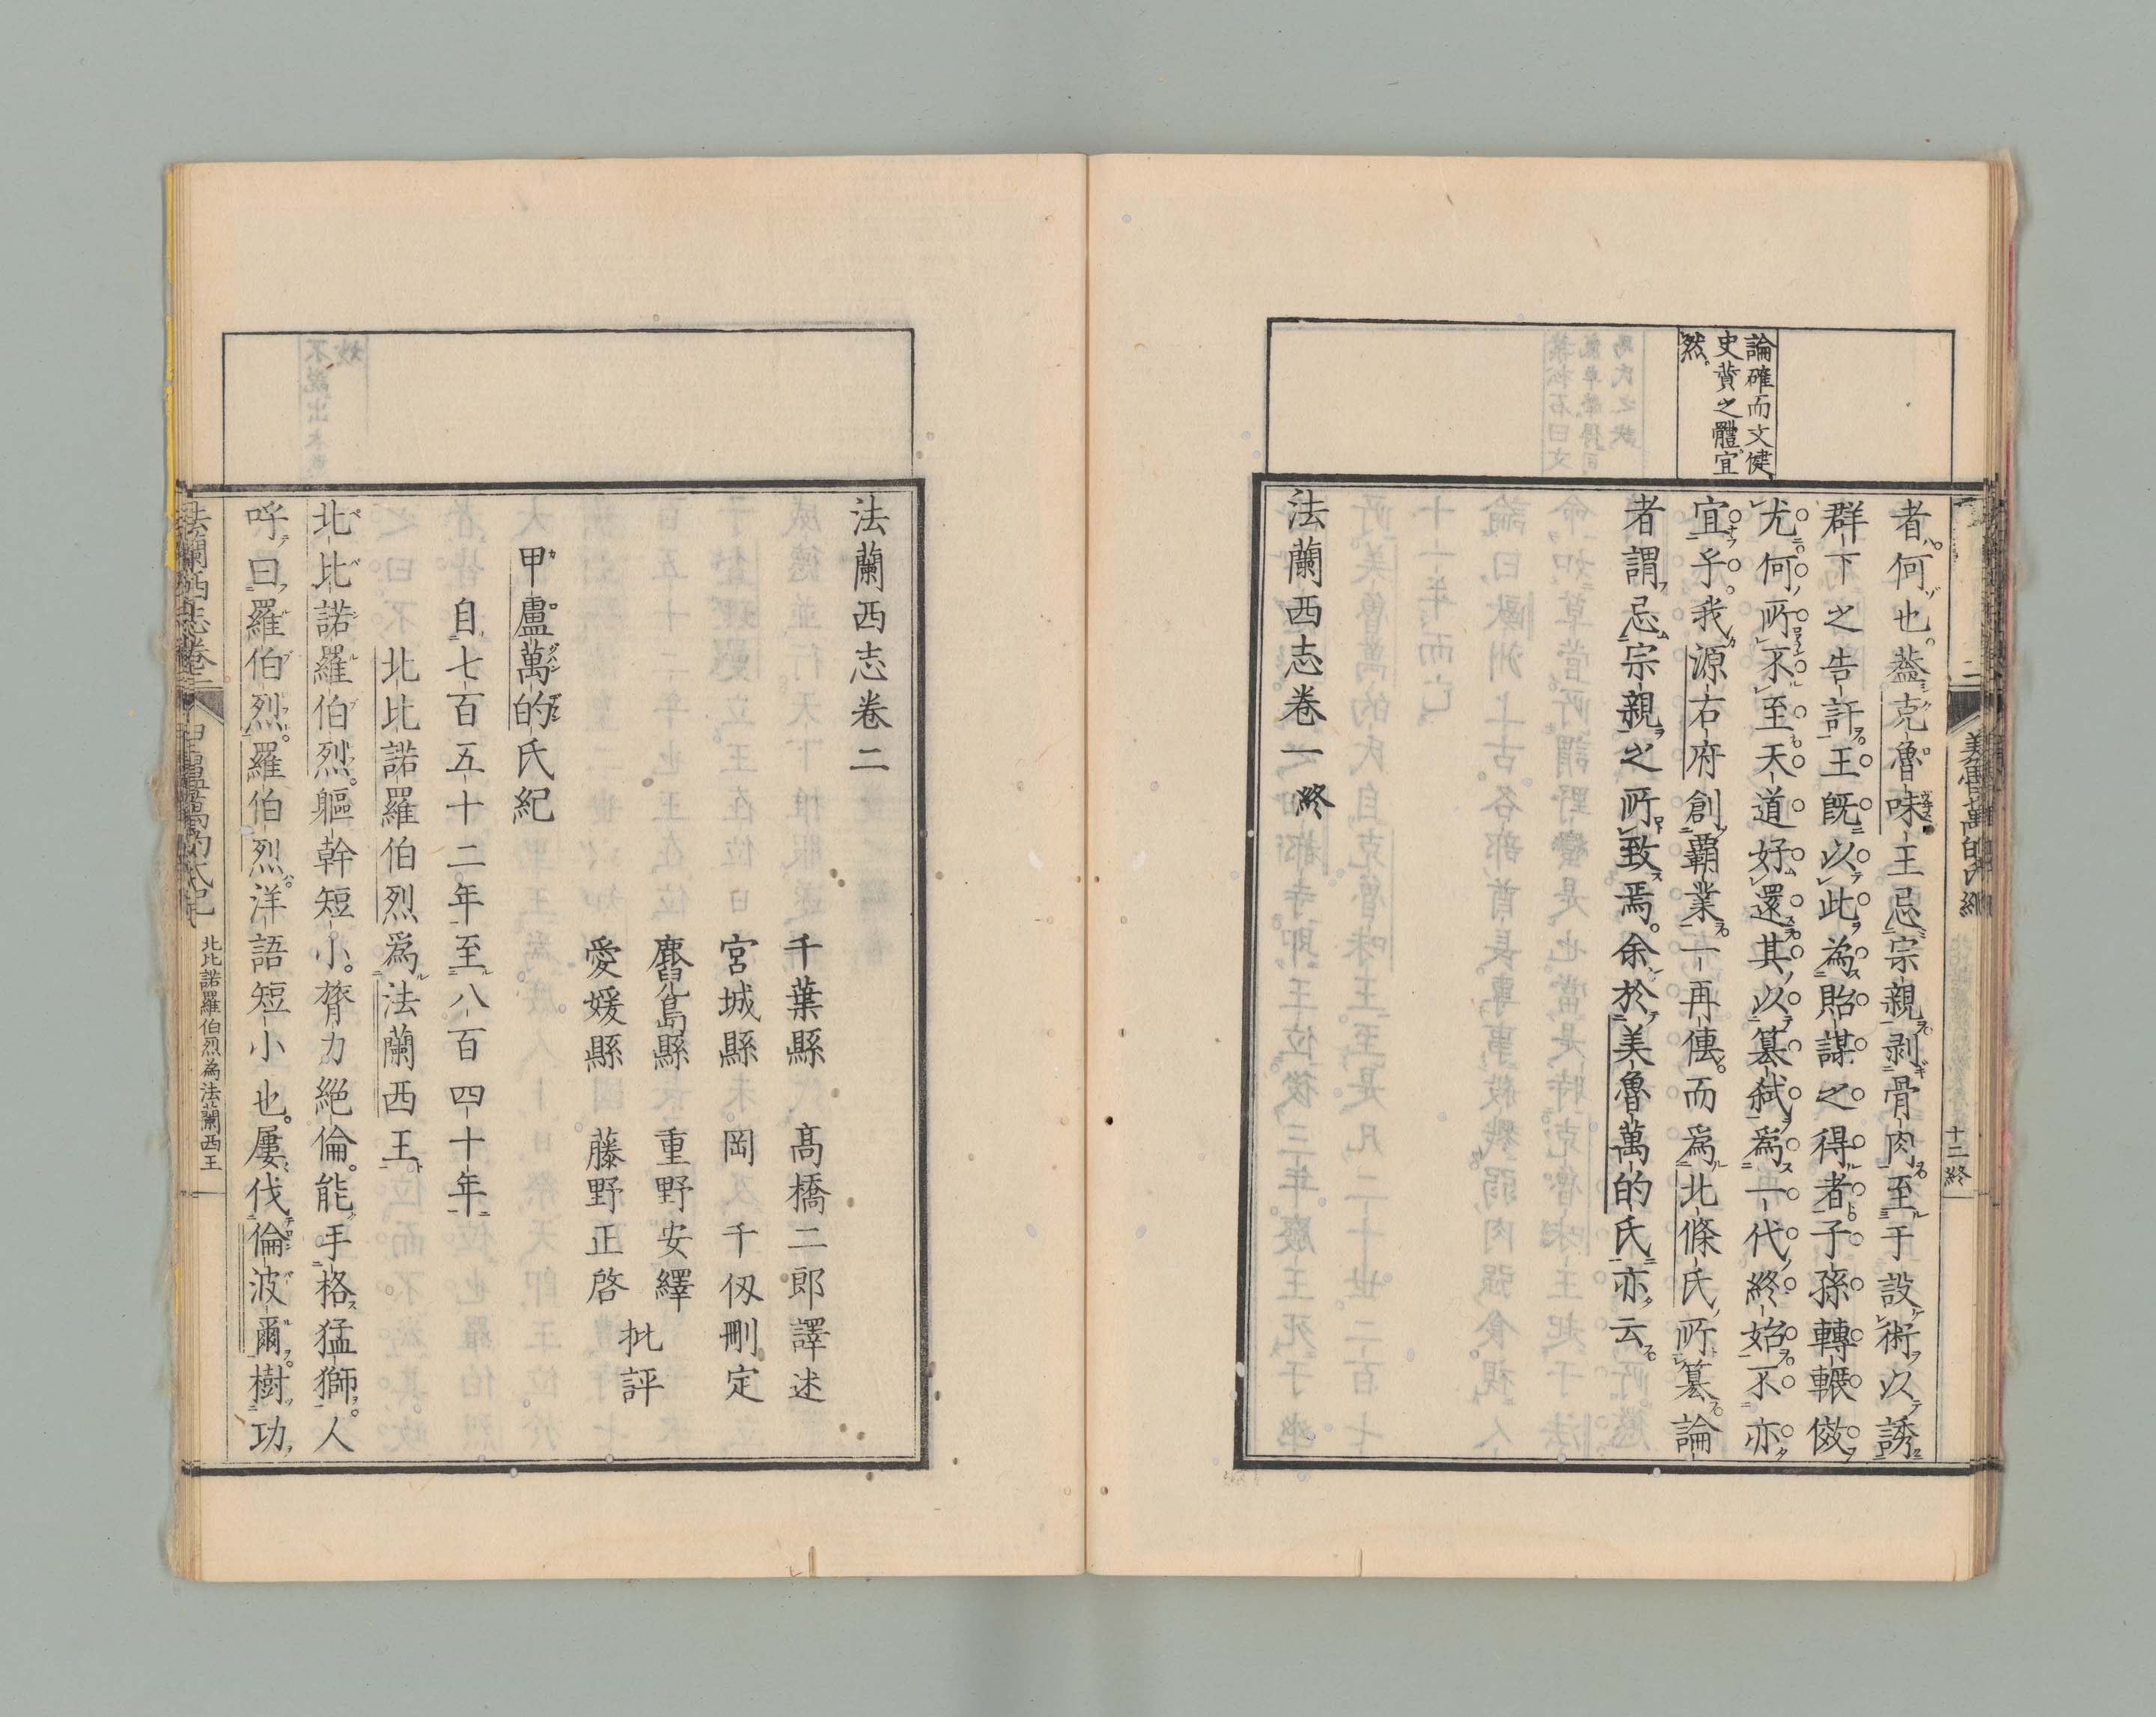 論確而文健
史賛之體宜
然。
者何也。蓋克魯味王忌宗親剥骨肉至于設術以誘
群下之告訐王既以此為貽謀之得者子孫轉輾傚
尤何所不至天道好還其以簒弑為一代終始不亦
宜乎。我源右府創覇業一再傳而為北條氏所簒論
者謂忌宗親之所致焉。余於美魯萬的氏亦云
法蘭西志卷一終
美魯萬的氏紀
十二終
法蘭西志卷二
千葉縣 髙橋二郎譯述
宮城縣 岡千仭刪定
鹿兒島縣 重野安繹
愛媛縣 藤野正啓
批評
甲盧萬的氏紀
自七百五十二年至八百四十年
北比諾羅伯烈為法蘭西王
北比諾羅伯烈。軀幹短小。膂力絶倫。能手格猛獅。人
呼曰羅伯烈。羅伯烈洋語短小也。屢伐倫波爾樹功
法蘭西志卷二
甲盧萬的氏紀
北比諾羅伯烈為法蘭西王